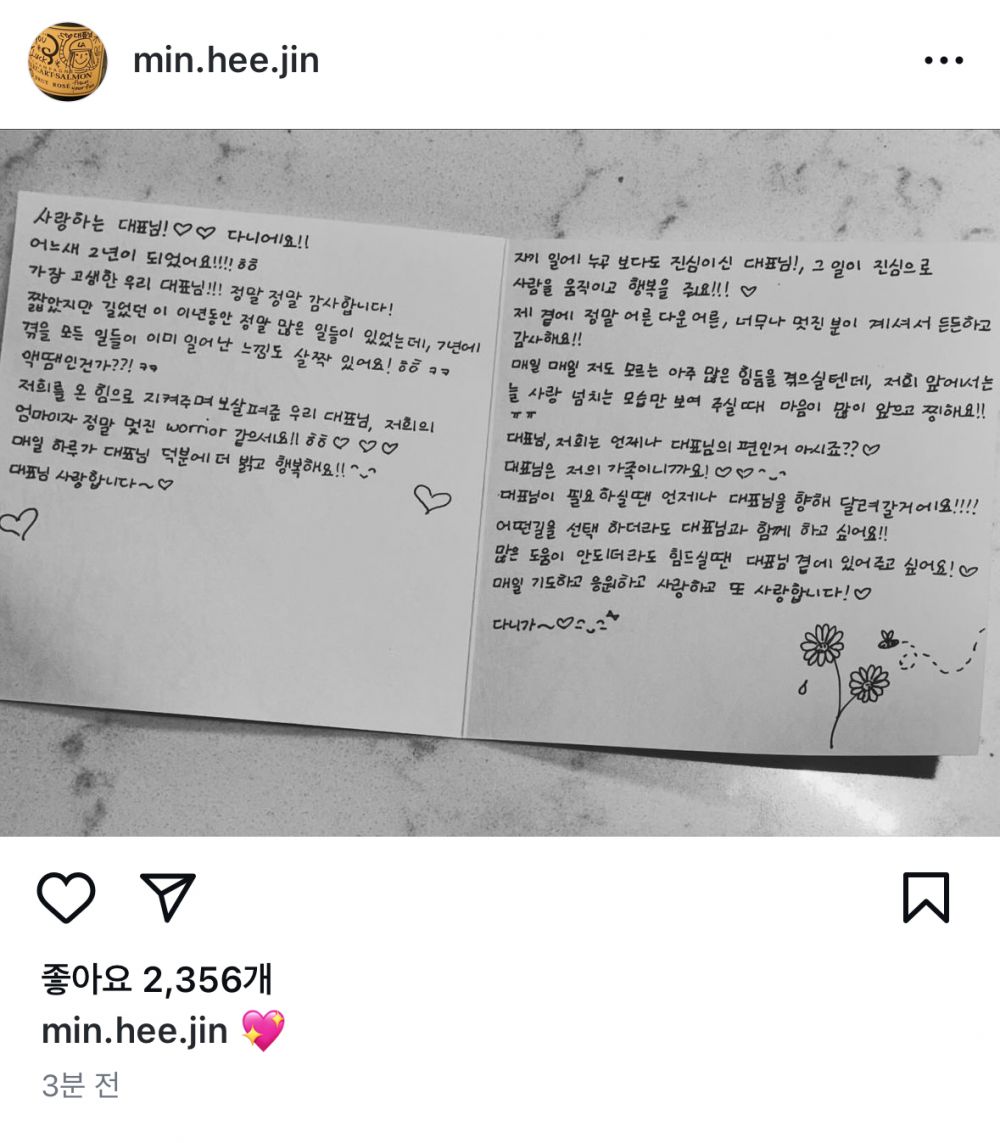 min.hee.jin
사랑하는 대표님!♡♡ 다니에요!!
어느새 2년이 되었어요!!!! ㅎㅎ
가장 고생한 우리 대표님!!! 정말 정말 감사합니다!
짧았지만 길었던 이 이년동안 정말 많은 일들이 있었는데, 7년에
겪을 모든 일들이 이미 일어난 느낌도 살짝 있어요! ㅎㅎ ㅋㅋ
액땜인건가??! ㅋㅋ
저희를 온 힘으로 지켜주며 보살펴준 우리 대표님, 저희의
엄마이자 정말 멋진 worrior 같으세요!! ㅎㅎ♡ ♡♡
매일 하루가 대표님 덕분에 더 밝고 행복해요!! ^‿^
대표님 사랑합니다~♡
자기 일에 누구 보다도 진심이신 대표님!, 그 일이 진심으로
사람을 움직이고 행복을 줘요!!! ♡
제 곁에 정말 어른 다운 어른, 너무나 멋진 분이 계셔서 든든하고
감사해요!!
매일 매일 저도 모르는 아주 많은 힘듦을 겪으실텐데, 저희 앞에서는
늘 사랑 넘치는 모습만 보여 주실 때 마음이 많이 앞으고 찡해요!!
ㅠㅠ
대표님, 저희는 언제나 대표님의 편인거 아시죠??♡
대표님은 저의 가족이니까요!♡♡^‿^
대표님이 필요하실땐 언제나 대표님을 향해 달려갈거에요!!!!
어떤길을 선택 하더라도 대표님과 함께 하고 싶어요!!
많은 도움이 안되더라도 힘드실땐 대표님 곁에 있어주고 싶어요!♡
매일 기도하고 응원하고 사랑하고 또 사랑합니다!♡
다니가~♡
좋아요 2,356개
min.hee.jin 💖
3분 전